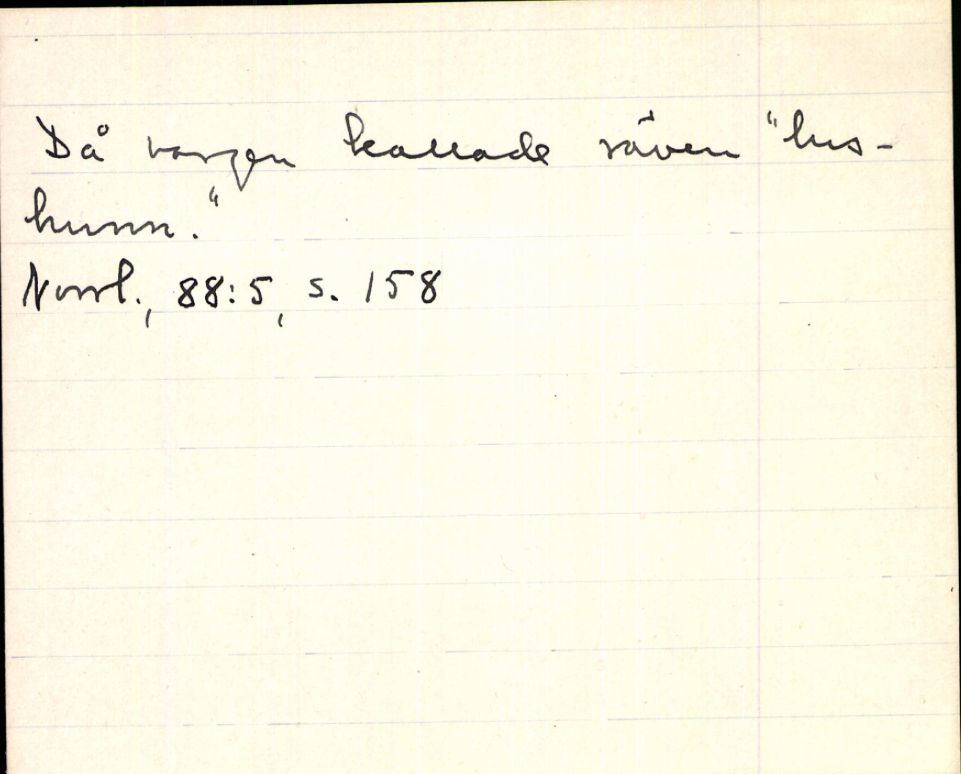 Då vargen kallade räven "hus-
hunn."
Norrl., 88:5, s. 158